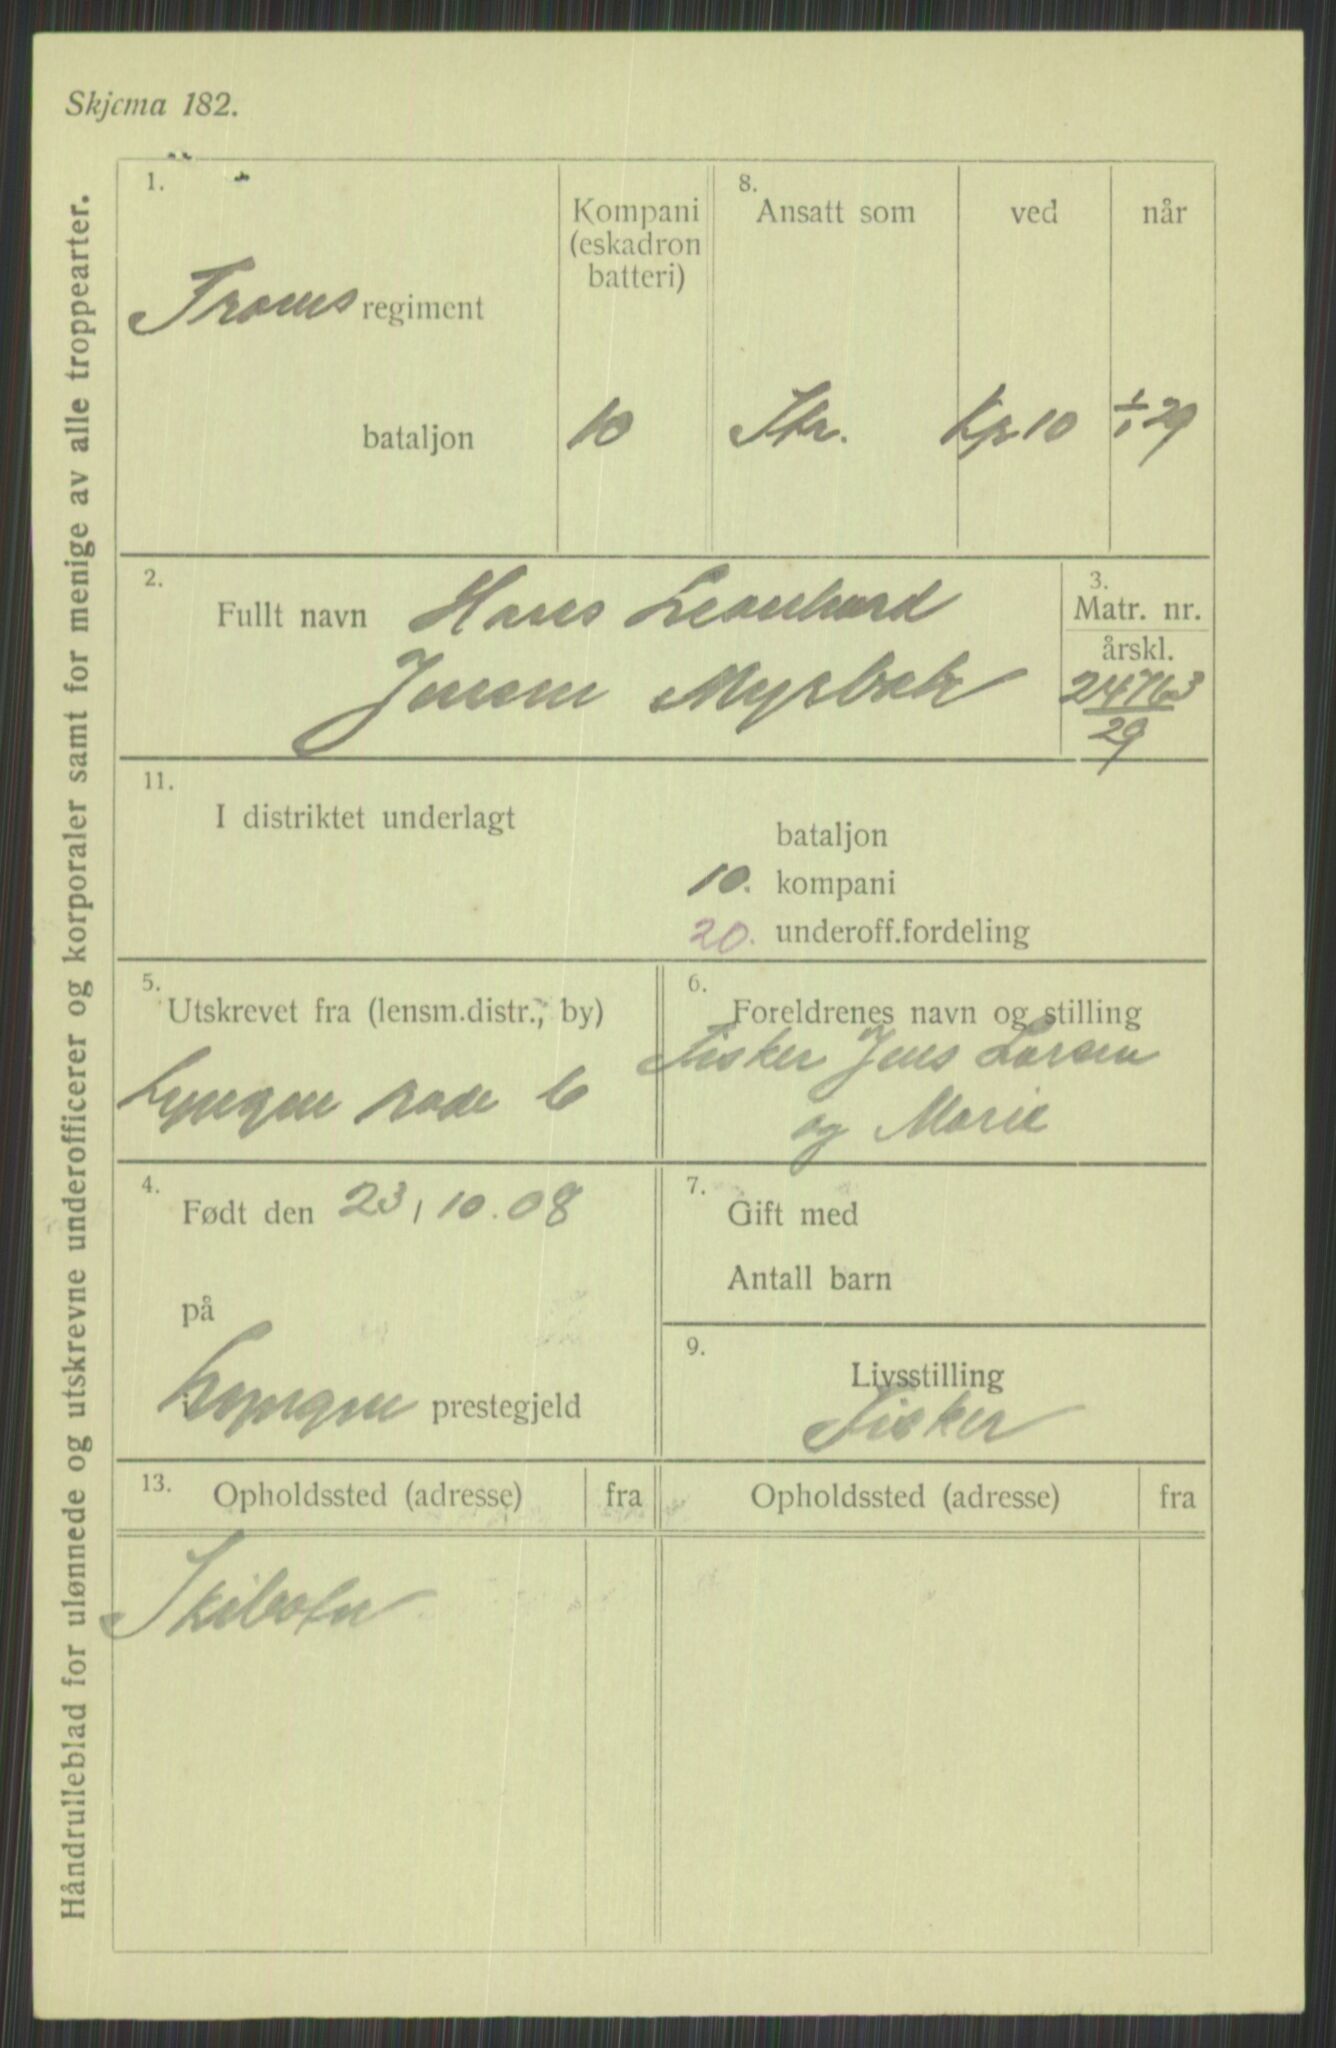 Skjema 182.
Håndrulleblad for ulønnede og utskrevne underofficerer og korporaler samt for menige av alle troppearter.
1.
Troms regiment
bataljon
Kompani
(eskadron
batteri)
10
8.
Ansatt som
ved
når
Str.
Kp 10
1/1 29
2.
Fullt navn Hans Leonhard
Jensen Myrbak
3.
Matr. nr.
årskl.
21476
29
11.
I distriktet underlagt
bataljon
10. kompani
20. underoff.fordeling
5.
Utskrevet fra (lensm.distr., by)
Lyngen rode 6
6.
Foreldrenes navn og stilling
Fisker Jens Larsen
og Marie
4.
Født den 23/10.08
på
Lyngen prestegjeld
7.
Gift med
Antall barn
9.
Livsstilling
Fisker
13.
Opholdssted (adresse)
fra
Opholdssted (adresse)
fra
Skibotn